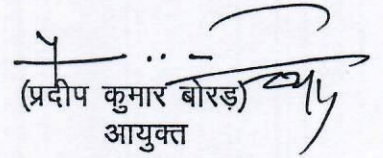 (प्रदीप कुमार बोरड़)
आयुक्त